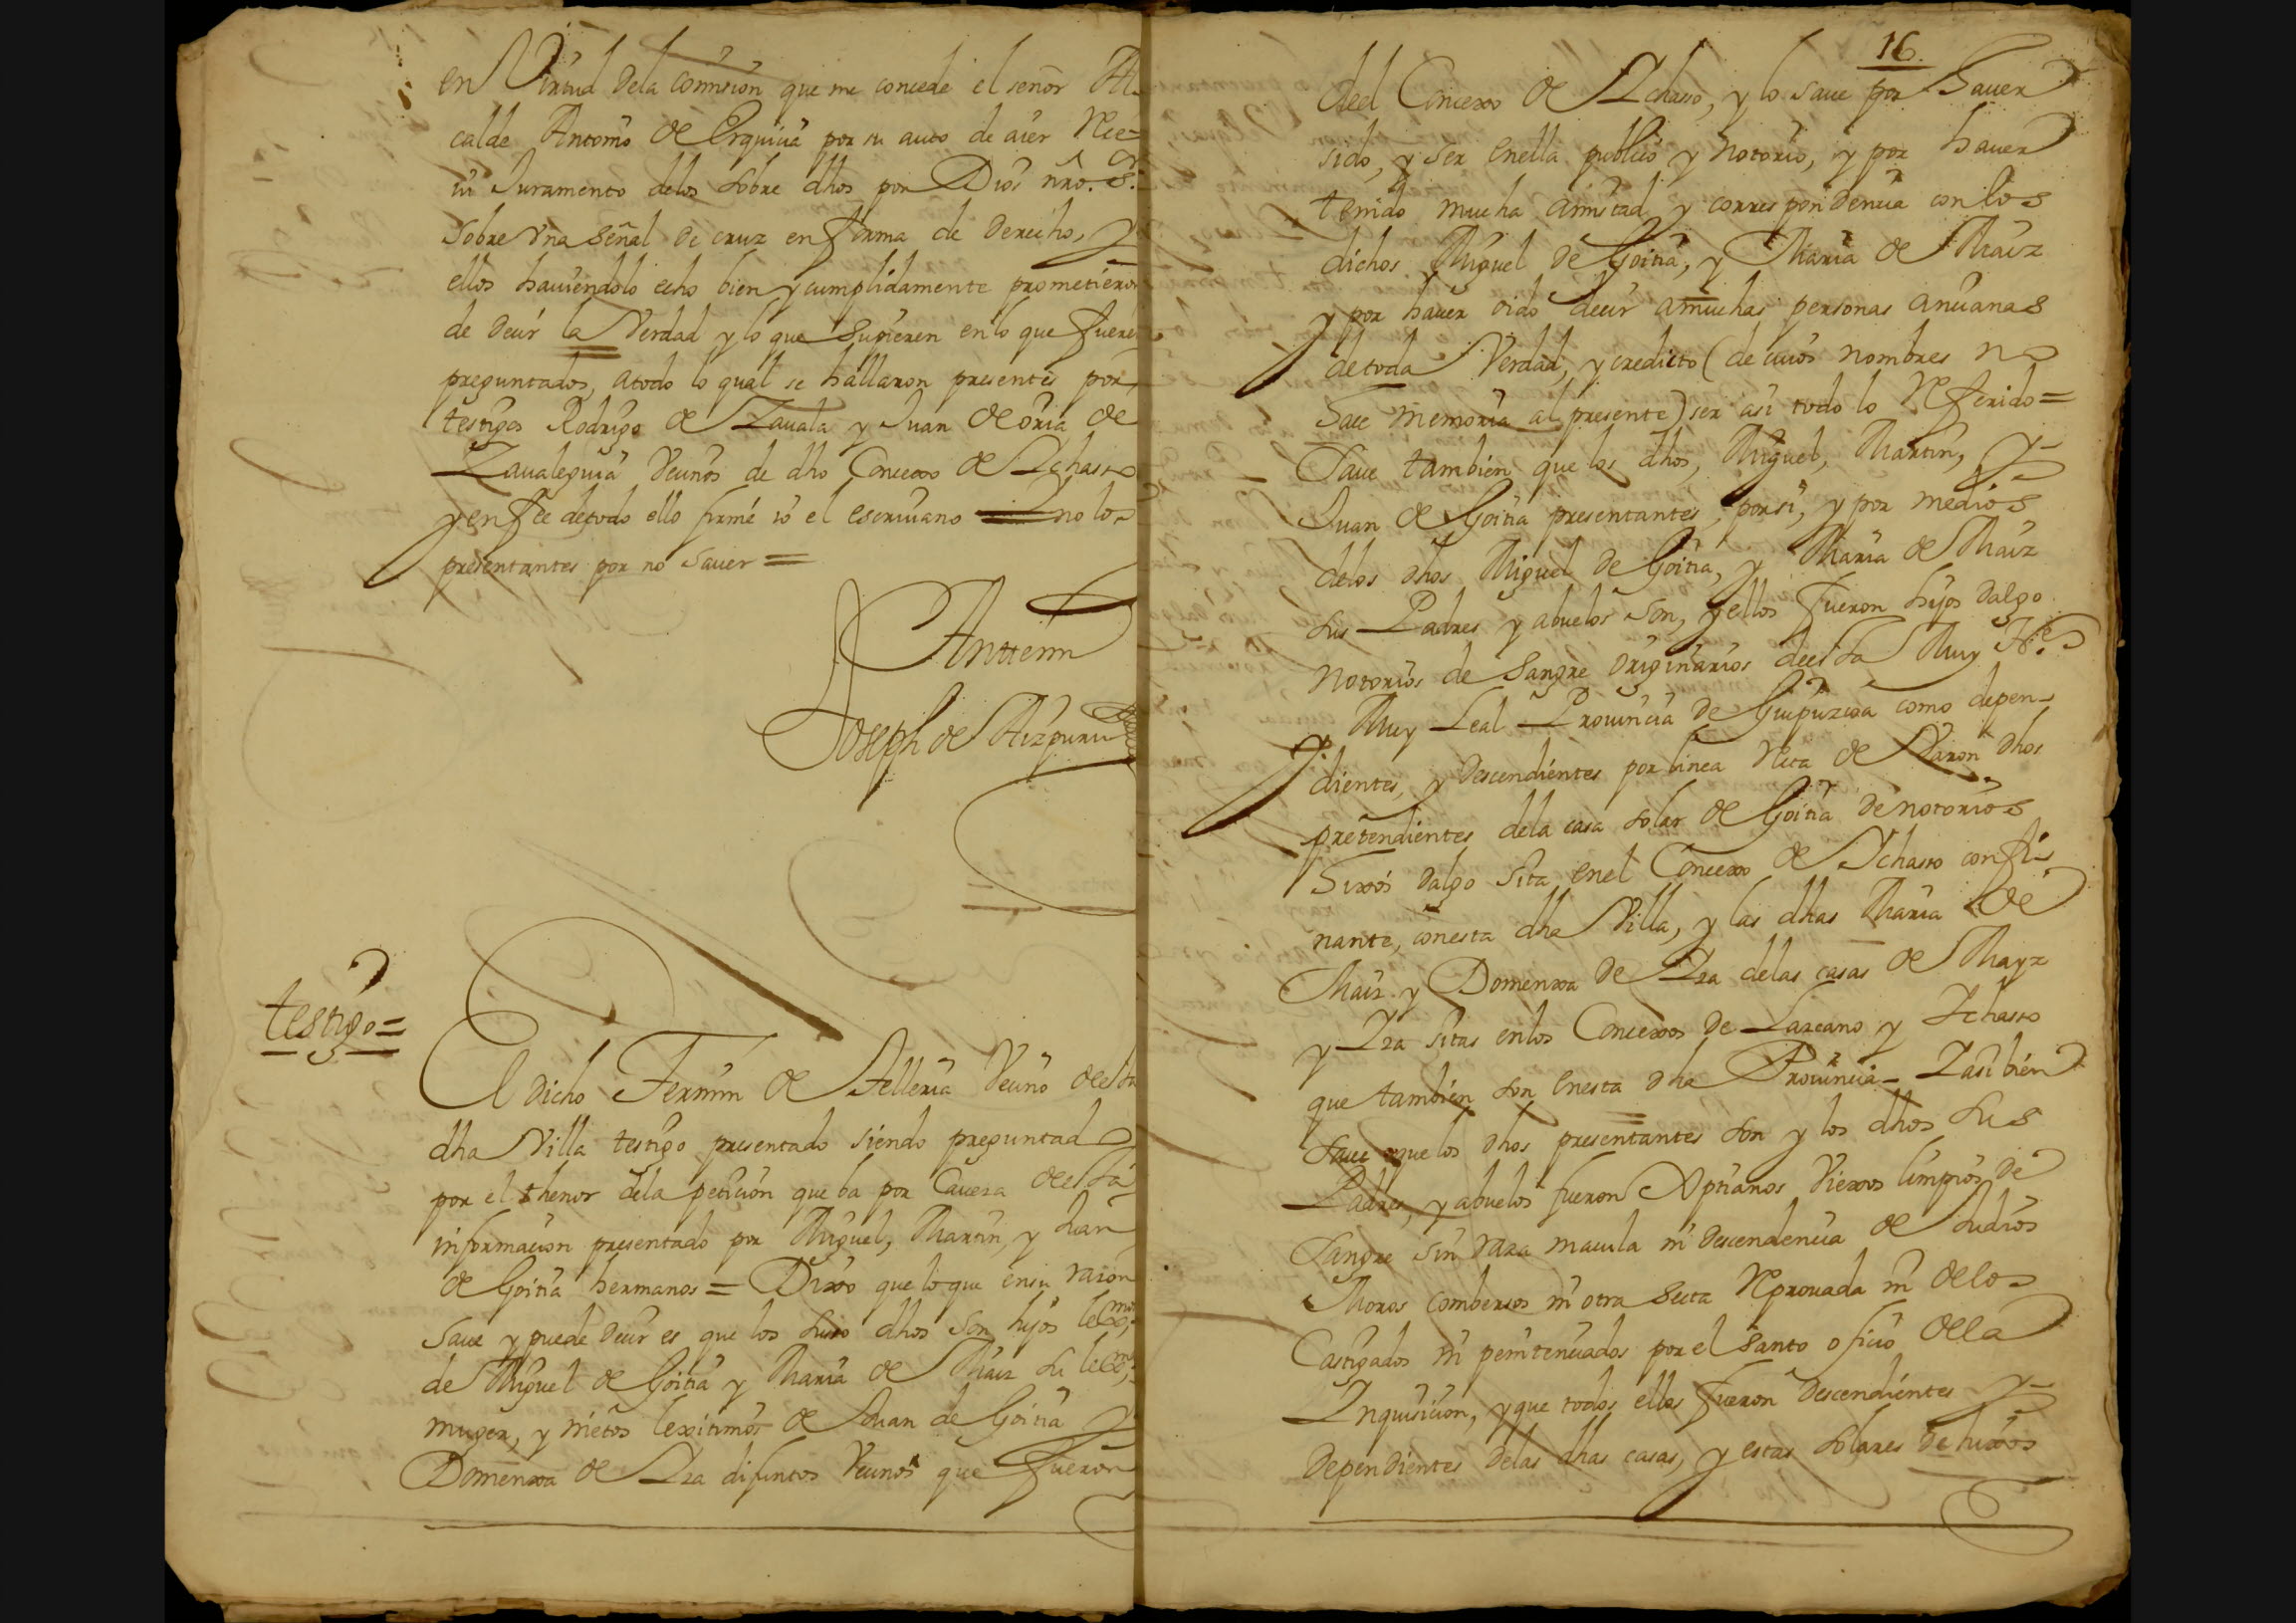 en Virtud dela comision que me concede el señor Al-
calde Antonio de Erquicia por su auto de aier Reci-
ui Juramento delos sobre dhos por Dios nro. Sr.
sobre vna señal de cruz en forma de derecho, y
ellos hauiendolo echo bien y cumplidamente prometieron
de decir la Verdad y lo que supieren en lo que fueren
preguntados, atodo lo qual se hallaron presentes por
testigos Rodrigo de Zauala y Juan de oria de
Zaualeguia Vecinos de dho Concexo de Ichasso
y en fee de todo ello firmé io el escriuano = y no los
presentantes por no sauer =
Antemi
Joseph de Aizpuru
testigo =
El dicho Fermin de Telleria Vecino de esta
dha Villa testigo presentado siendo preguntado
por el thenor dela peticion que ba por Caueza de esta
informacion presentado por Miguel, Martin, y Juan
de Goitia hermanos = Dixo que lo que en su razon
saue y puede decir es que los suso dhos son hijos lexmos,
de Miguel de Goitia y Maria de Maiz su lexma,
muger, y nietos lexitimos de Juan de Goitia y
Domenxa de Iza difuntos Vecinos que fueron
16.
del Concexo de Ichasso, y lo saue por hauer
sido, y ser enella publico y notorio, y por hauer
tenido mucha amistad y correspondencia con los
dichos Miguel de Goitia, y Maria de Maiz
y por hauer oido decir amuchas personas ancianas
detoda Verdad, y credicto (de cuios nombres no
hace memoria al presente) ser asi todo lo Referido =
Saue tambien que los dhos, Miguel, Martin, y
Juan de Goitia presentantes, porsi, y por medios
delos dhos Miguel de Goitia, y Maria de Maiz
sus Padres y abuelos son, y ellos fueron hijos dalgo
notorios de sangre originarios deesta Muy Ne.
y Muy Leal Prouincia de Guipuzcoa como depen-
dientes, y descendientes por linea Recta de Varon dhos
pretendientes dela casa solar de Goitia de notorios
hixos dalgo sita enel Concexo de Ichasso confi-
nante, conesta dha Villa, y las dhas Maria de
Maiz y Domenxa de Iza delas casas de Mayz
y Iza sitas enlos Concexos de Lazcano y Ichasso
que tambien son enesta dha Prouincia = Y asi bien
saue que los dhos presentantes son y los dhos sus
Padres, y abuelos fueron Xptianos Viexos limpios de
sangre sin raza macula ni descendencia de Judios
Moros combersos ni otra secta Reprouada ni delos
Castigados ni penitenciados por el santo oficio dela
Inquisicion, y que todos ellos fueron descendientes y
dependientes delas dhas casas, y estas solares de hixos